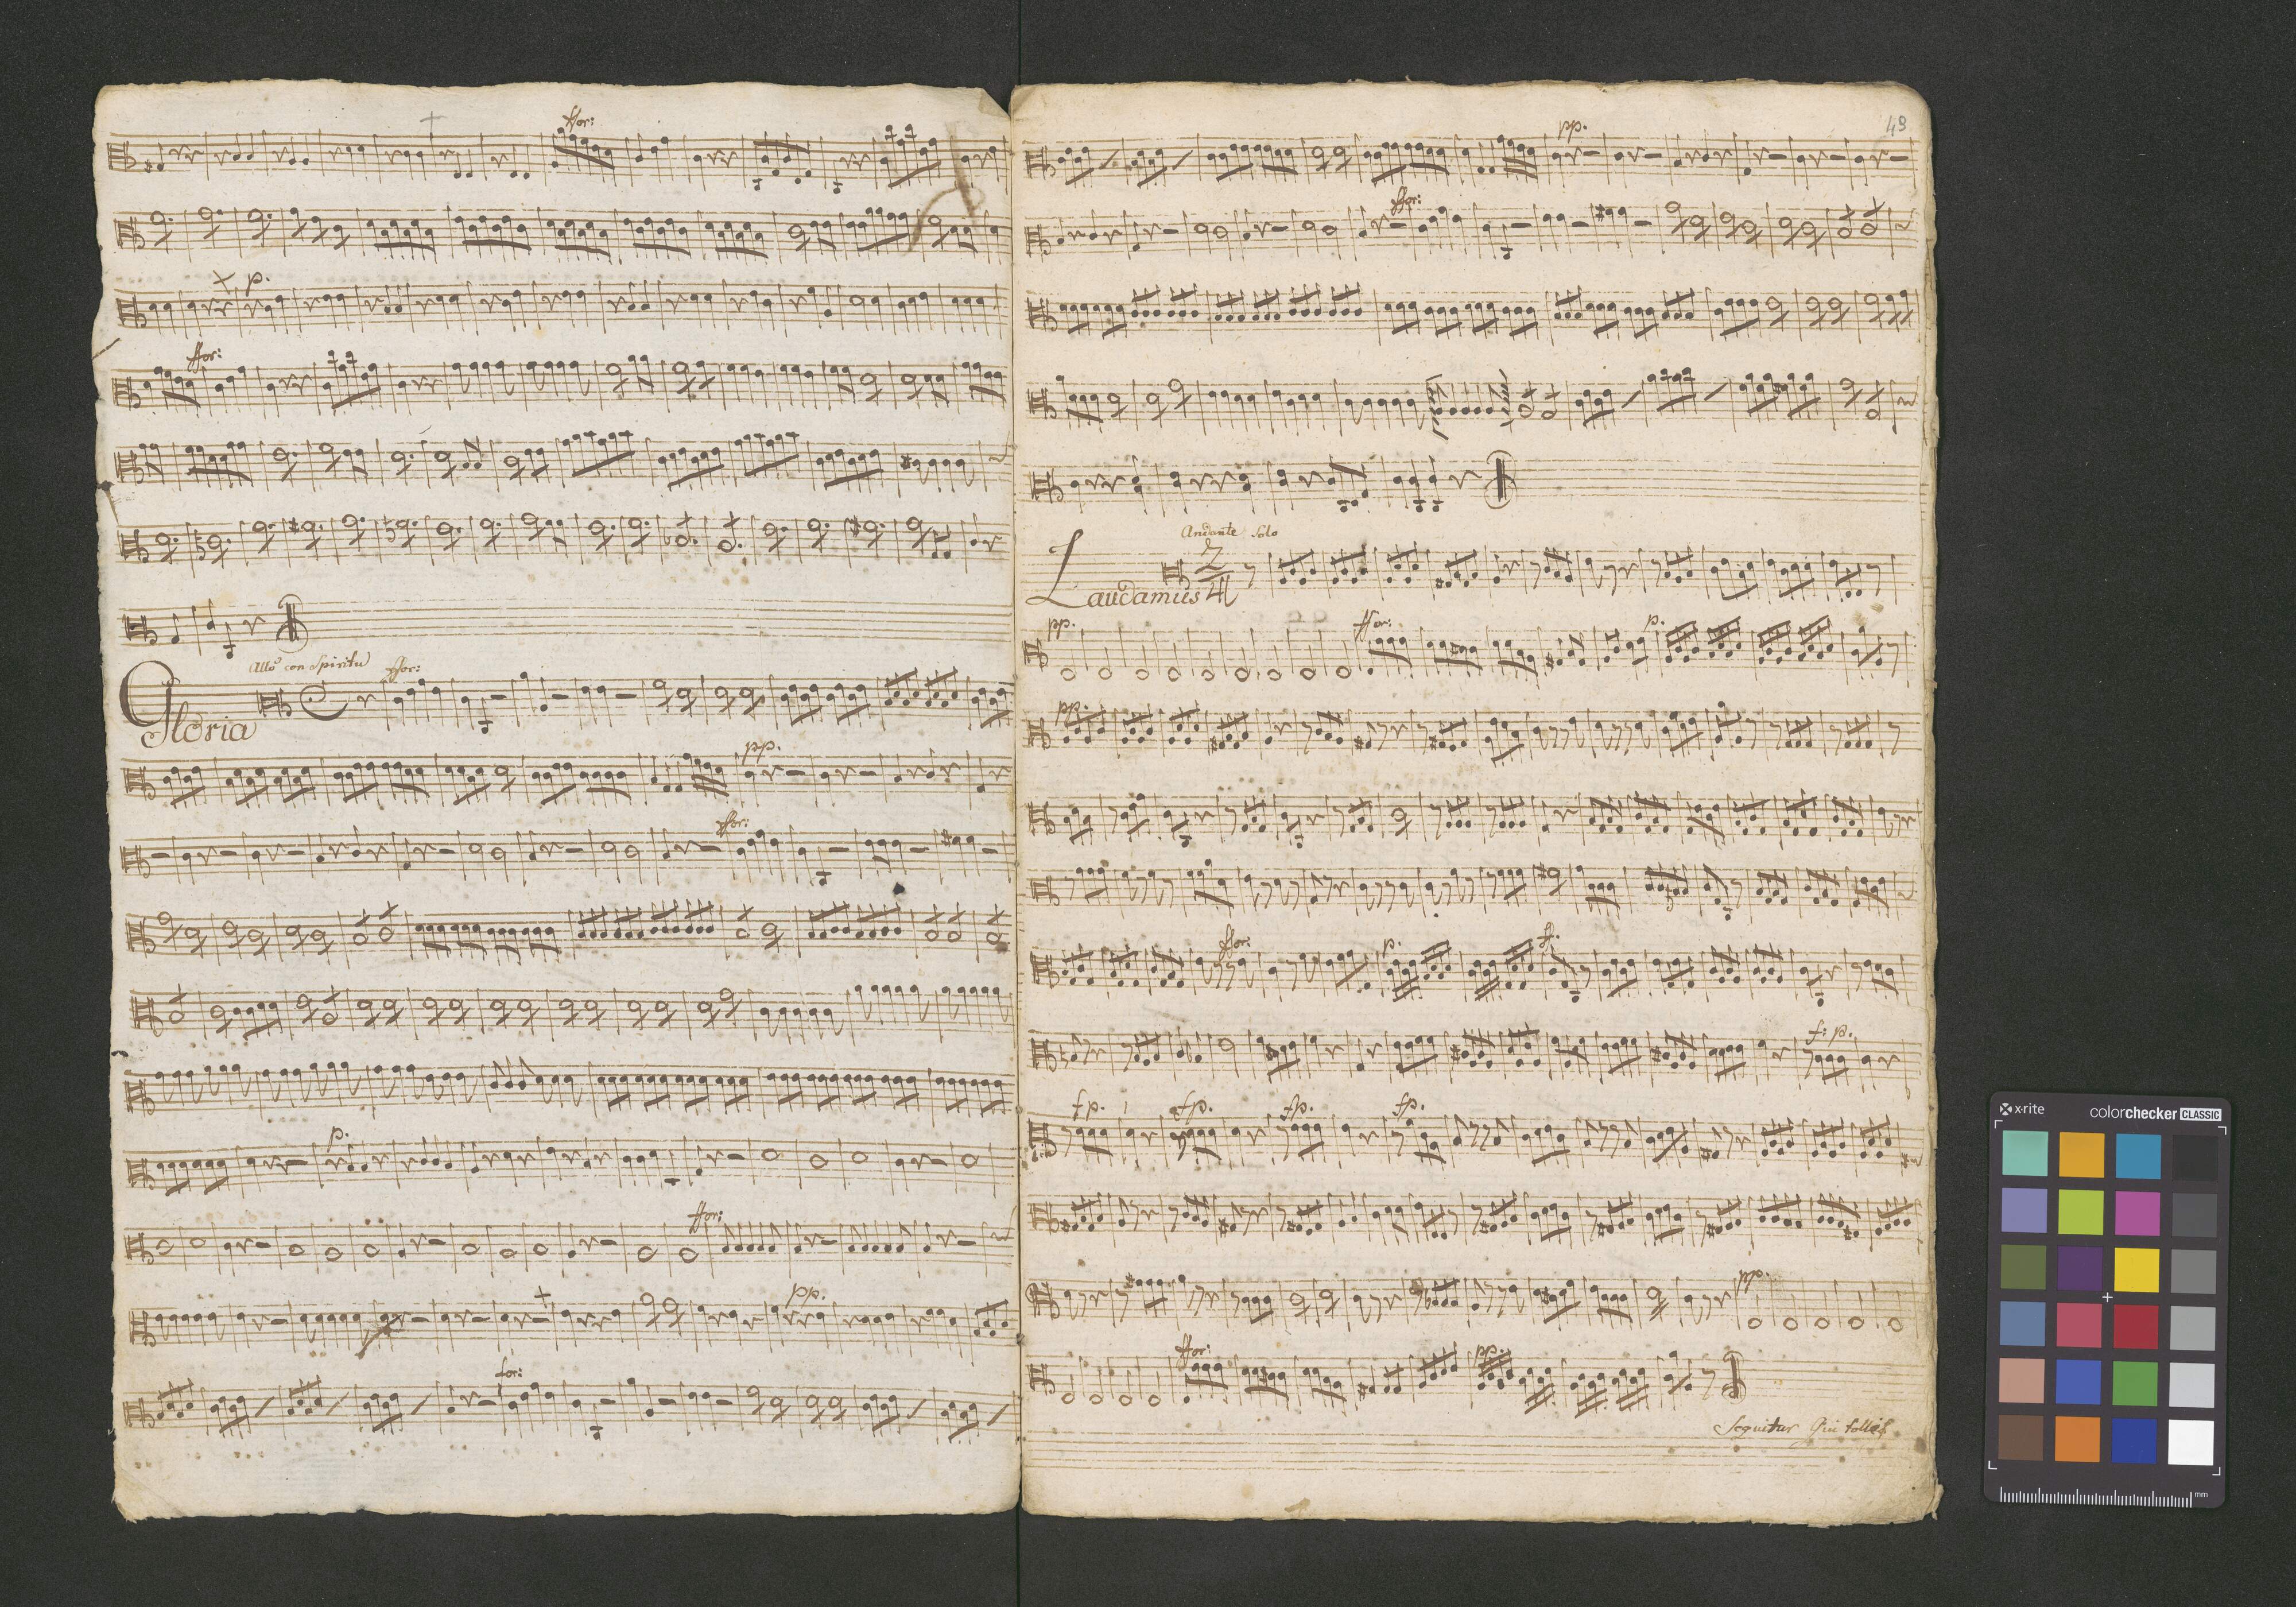 ffor:
p.
ffor:
Allo con Spiritu
ffor:
Gloria
pp.
ffor:
p.
ffor:
pp.
for:
49
pp.
ffor:
Andante Solo
2
4
Laudamus
pp.
ffor:
p.
pp.
ffor:
p.
f.
f: p.
fp.
fp.
fp.
fp.
pp.
ffor:
pp.
Sequitur Qui tollis
x-rite
colorchecker CLASSIC
mm